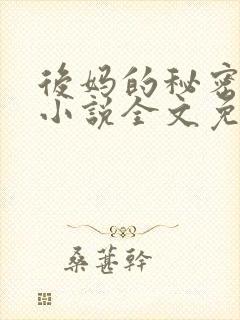 後妈的秘密
小説全文免
桑葚幹